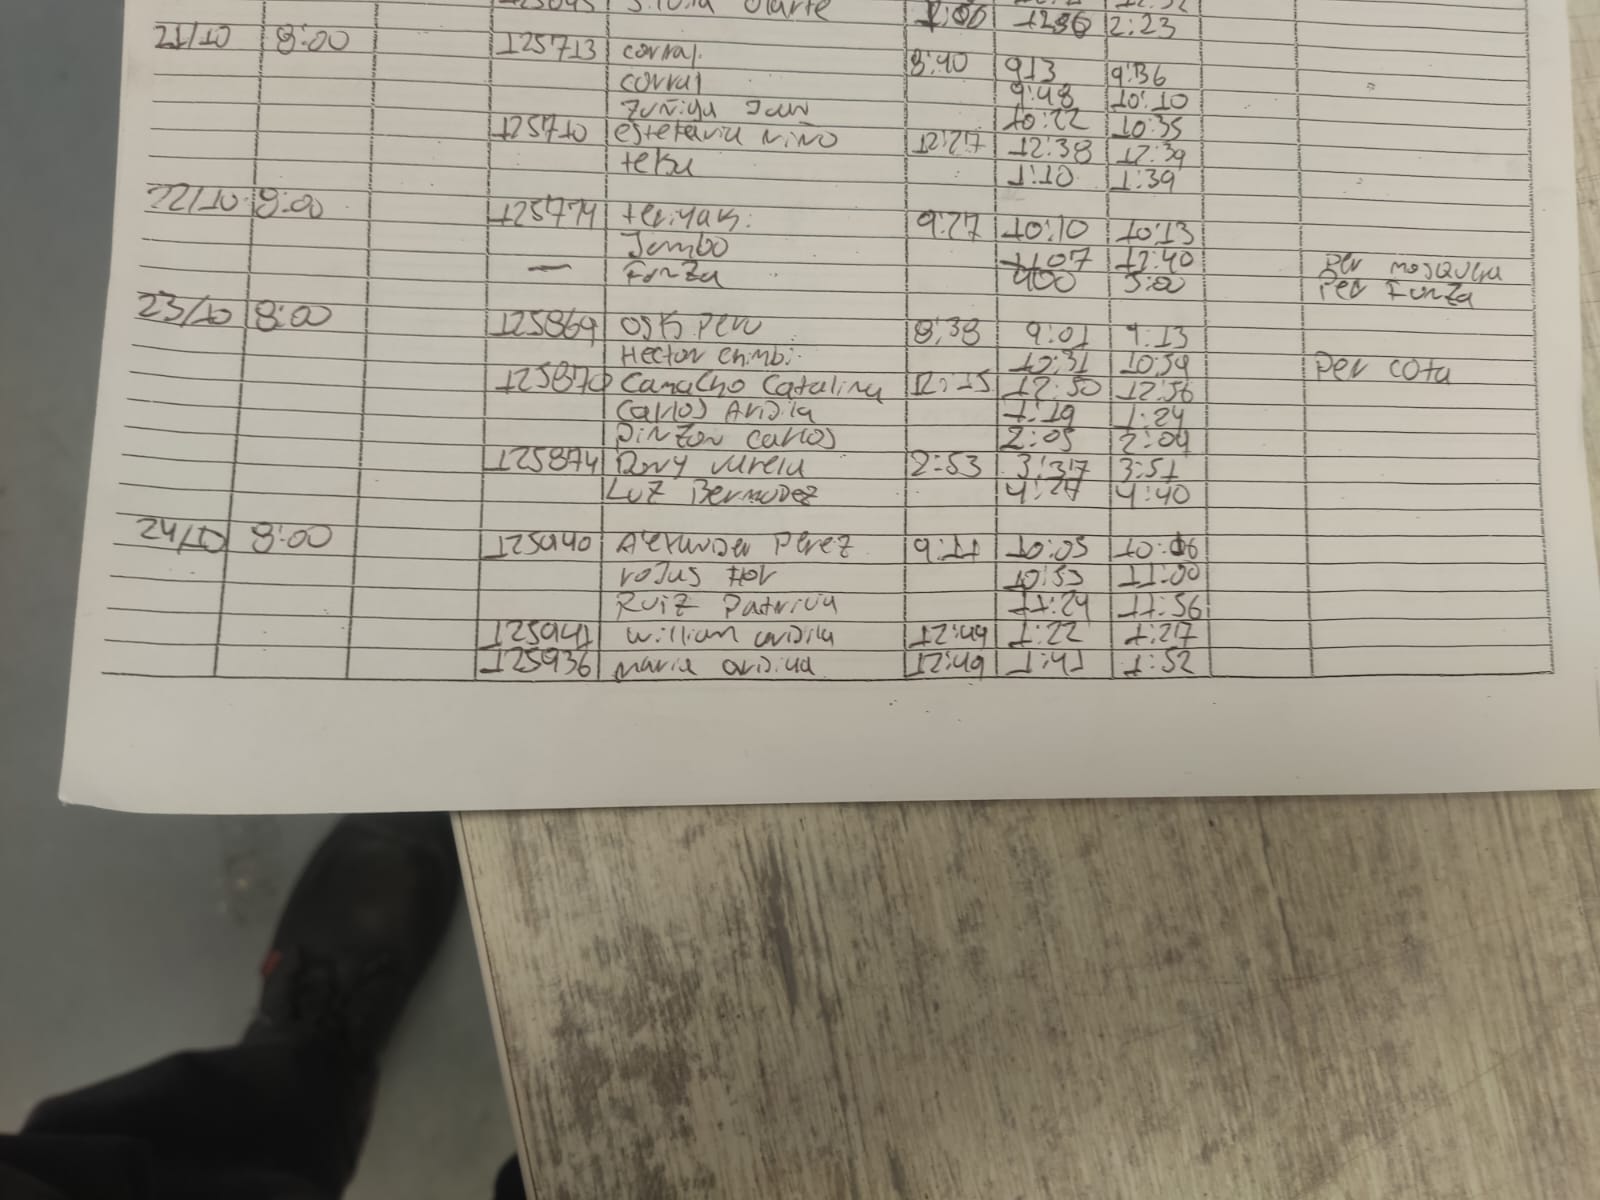 Olarte 12:06 1236 2:23
21/10 8:00 125713 corral. 8:40 913 9:36
corral 9:48 10:10
Zuñiga Juan 10:22 10:35
125710 estefania niño 12:27 12:38 12:39
teka 1:10 1:39
22/10 8:00 125774 teriyaki 9:27 10:10 10:13
Jumbo 1107 12:40 Per mosquera
— Funza 400 5:00 Per Funza
23/10 8:00 125869 osk Peru 8:38 9:01 9:13
Hector chimbi 10:31 10:59 Per cota
125870 Camacho Catalina 12:15 12:50 12:56
Carlos Ardila 1:19 1:24
Pinzon Carlos 2:05 2:09
125874 Dory Varela 2:53 3:37 3:51
Luz Bermudez 4:27 4:40
24/10 8:00 125940 Alexander Perez 9:11 10:05 10:06
rojas Flor 10:53 11:00
Ruiz Patricia 11:24 11:56
125941 willian ardila 12:49 1:22 1:27
125936 maria ardila 12:49 1:41 1:52